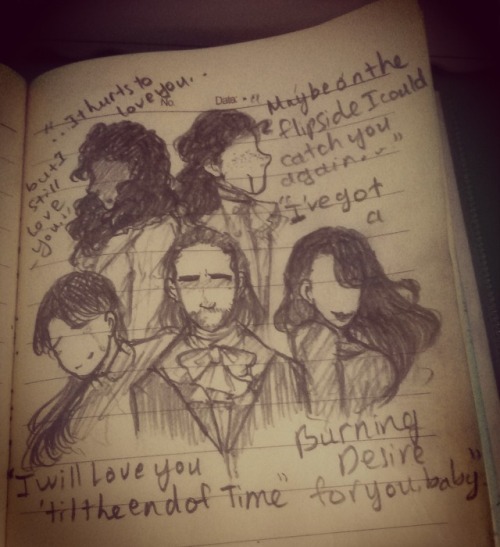 "..It hurts to
love you..
but I
still
love
you.."
No.
Date:
"Maybe on the
flipside I could
catch you
again..."
"I've got
a
Burning
Desire
for you, baby"
"I will Love you
'till the end of Time"